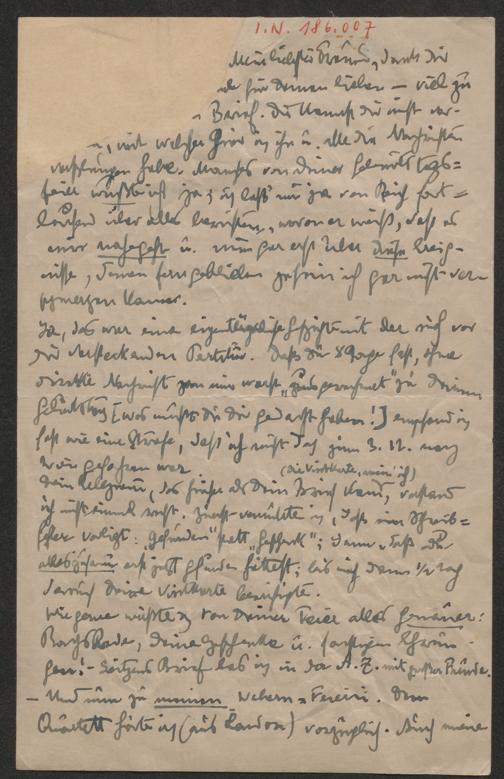 I.N. 186.007
Mein liebster Freund, dank Dir
für Deinen lieben — viel zu
Brief. Du kannst Dir nicht vor-
mit welcher Gier ich ihn u. alle die Nachrichten
verschlungen habe. Manches von Deiner Geburtstags=
feier wußte ich ja; ich lass' mir ja von Reich fort=
laufend über alles berichten, woran er weiß, daß es
mir nahegeht u. nun gar erst über diese Ereig-
nisse, denen ferngeblieben zu sein ich gar nicht ver-
schmerzen kann.
Ja, das war eine eigentümliche mit der sich vor
Dir versteckenden Partitur. Daß Du 8 Tage fast, ohne
direkte Nachricht von mir warst, „ausgerechnet" zu Deinem
Geburtstag [was mußt Du Dir gedacht haben!] empfand ich
fast wie eine Strafe, daß ich nicht doch zum 3. 12. nach
Wien gefahren war.
(die Visitkarte, mein' ich)
Dein Telegramm, das früher als Dein Brief kam, verstand
ich nicht einmal recht. Zuerst vermutete ich, daß ein Schreib=
fehler vorliegt: „gefunden" statt „ "; dann, daß Du
alles erst jetzt gefunden hättest; bis mich dann ½ Tag
darauf Deine Visitkarte beruhigte.
Wie gerne wüßte ich von Deiner Feier alles genauer:
Bachs Rede, Deine Geschenke u. sonstigen Ehrun-
gen! — Brief las ich in der N. Z. mit großer Freude.
— Und nun zu meinen Webern=Feiern. Dein
Quartett hörte ich (aus London) vorzüglich. Auch meine